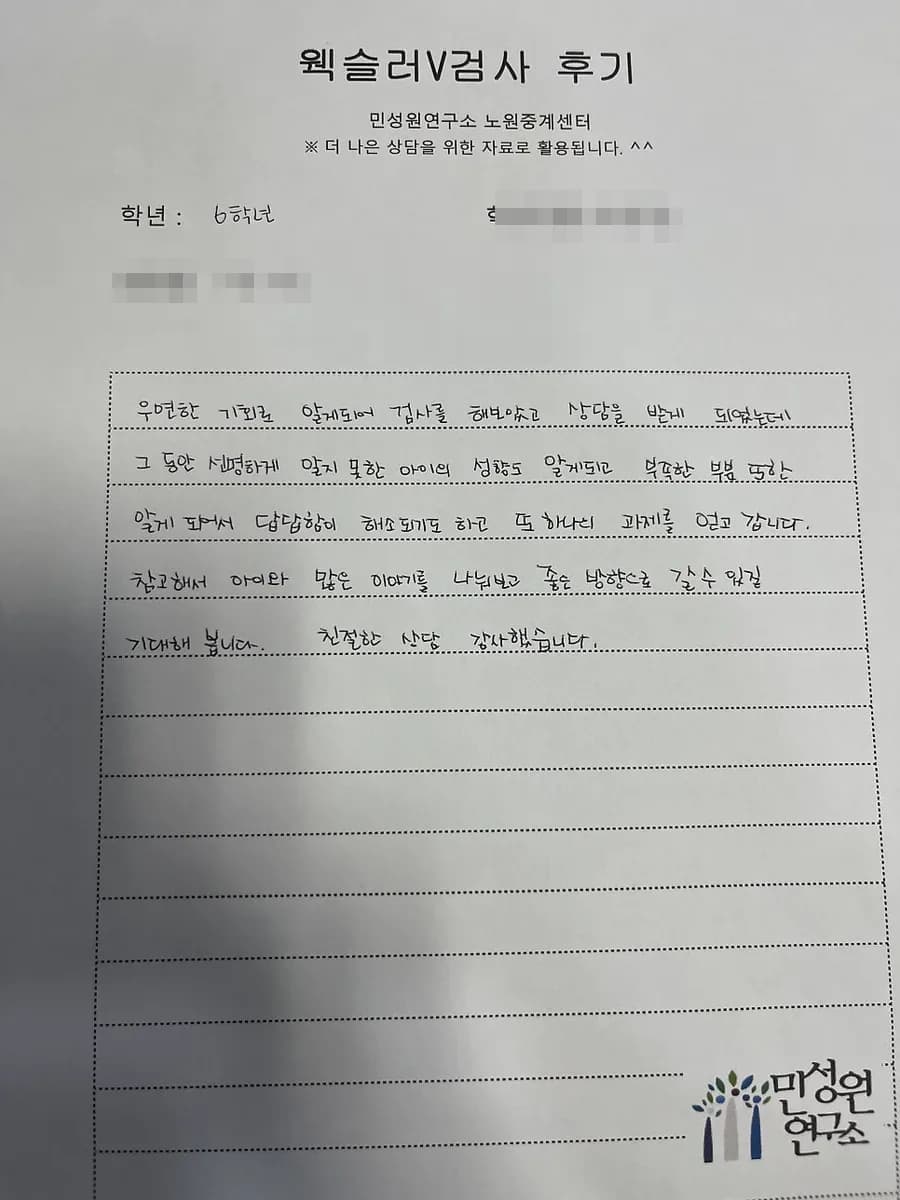 웩슬러V검사 후기
민성원연구소 노원중계센터
※ 더 나은 상담을 위한 자료로 활용됩니다. ^^
학년 : 6학년
우연한 기회로 알게되어 검사를 해보았고 상담을 받게 되었는데
그 동안 선명하게 알지 못한 아이의 성향도 알게되고 부족한 부분 또한
알게 되어서 답답함이 해소되기도 하고 또 하나의 과제를 얻고 갑니다.
참고해서 아이와 많은 이야기를 나눠보고 좋은 방향으로 갈 수 있길
기대해 봅니다. 친절한 상담 감사했습니다.
민성원
연구소